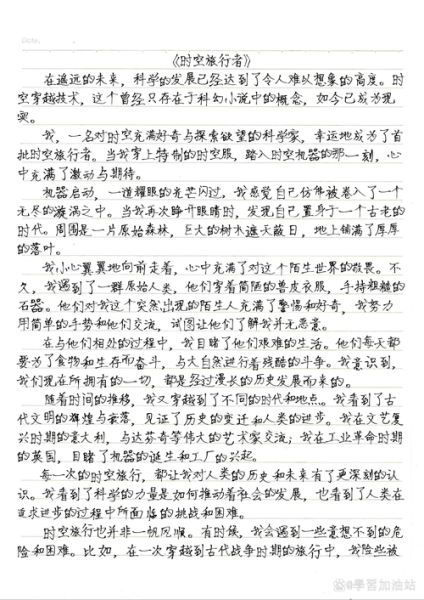 Date.
《时空旅行者》
在遥远的未来，科学的发展已经达到了令人难以想象的高度。时
空穿越技术，这个曾经只存在于科幻小说中的概念，如今已成为现
实。
我，一名对时空充满好奇与探索欲望的科学家，幸运地成为了首
批时空旅行者。当我穿上特制的时空服，踏入时空机器的那一刻，心
中充满了激动与期待。
机器启动，一道耀眼的光芒闪过，我感觉自己仿佛被卷入了一个
无尽的漩涡之中。当我再次睁开眼睛时，发现自己置身于一个古老的
时代。周围是一片原始森林，巨大的树木遮天蔽日，地上铺满了厚厚
的落叶。
我小心翼翼地向前走着，心中充满了对这个陌生世界的敬畏。不
久，我遇到了一群原始人类，他们穿着简陋的兽皮衣服，手持粗糙的
石器。他们对我这个突然出现的陌生人充满了警惕和好奇，我努力
用简单的手势和他们交流，试图让他们了解我并无恶意。
在与他们相处的过程中，我目睹了他们艰难的生活。他们每天都
要为了食物和生存而奋斗，与大自然进行着残酷的斗争。我意识到，
我们现在所拥有的一切，都是经过漫长的历史发展而来的。
随着时间的推移，我又穿越到了不同的时代和地点。我看到了古
代文明的辉煌与衰落，见证了历史的变迁和人类的进步。我在文艺复
兴时期的意大利，与达芬奇等伟大的艺术家交流；我在工业革命时期
的英国，目睹了机器的诞生和工厂的兴起。
每一次的时空旅行，都让我对人类的历史和未来有了更深刻的认
识。我看到了科学的力量是如何推动着社会的发展，也看到了人类在
追求进步的过程中所面临的挑战和困难。
时空旅行也并非一帆风顺。有时候，我会遇到一些意想不到的危
险和困难。比如，在一次穿越到古代战争时期的旅行中，我险些被
學習加油站